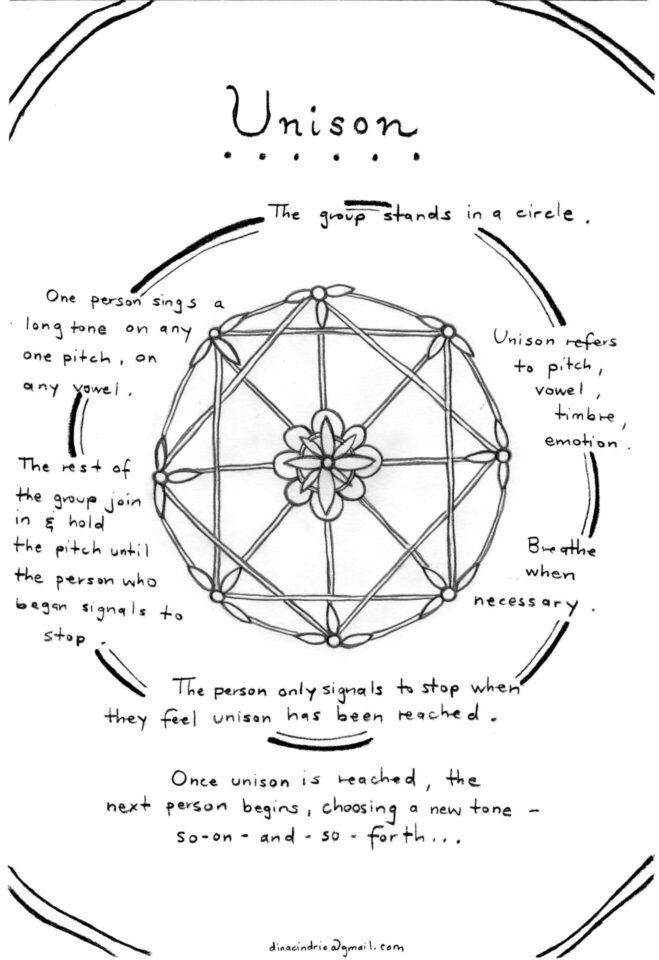 Unison
The group stands in a circle.
One person sings a
long tone on any
one pitch, on
any vowel.
Unison refers
to pitch,
vowel,
timbre,
emotion.
The rest of
the group join
in & hold
the pitch until
the person who
began signals to
stop.
Breathe
when
necessary.
The person only signals to stop when
they feel unison has been reached.
Once unison is reached, the
next person begins, choosing a new tone -
so-on - and - so - forth...
dinacindric@gmail.com